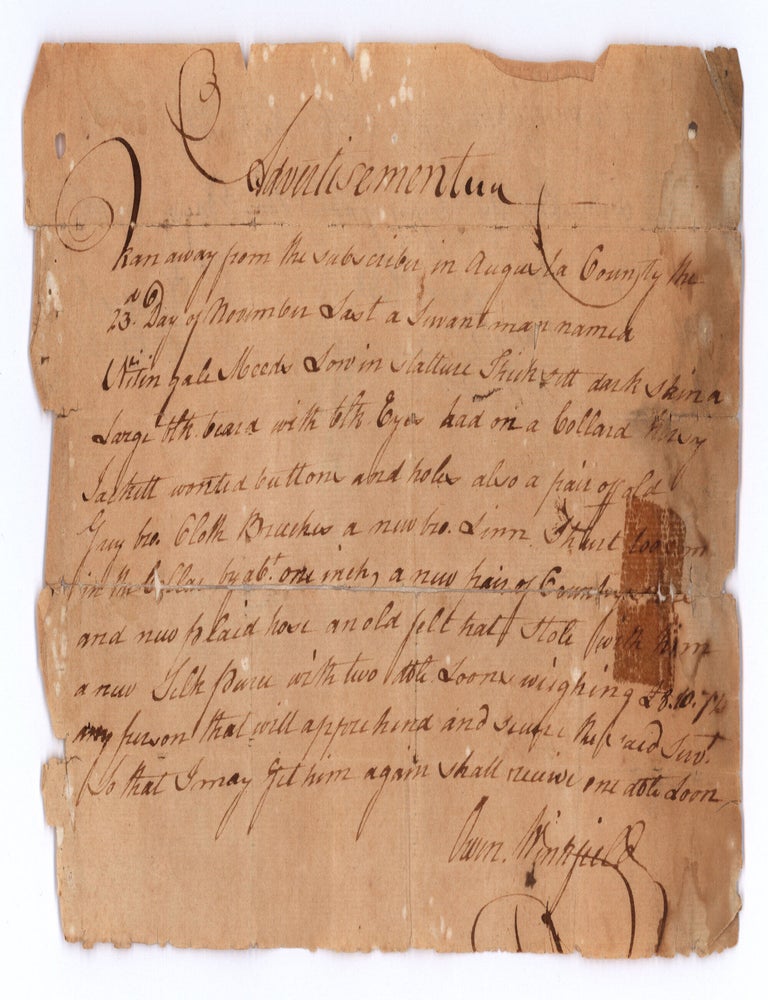 Advertisement
Ran away from the subscriber in Augusta County the
23d Day of November Last a Servant man named
Meeds Low in Stature Thick sett dark skin a
Large blk beard with blk Eyes had on a Collard kersy
Jackett worsted buttons and holes also a pair of old
Grey bro. Cloth Breeches a new bro. Linn Shirt too
in the Collar by abt. one inch, a new pair of Country
and new plaid hose an old felt hat Stole with him
a new Silk Purse with two dble Loons weighing £8.10.
any person that will apprehend and secure the said Servt.
So that I may Get him again shall receive one dble Loon
Winkfield